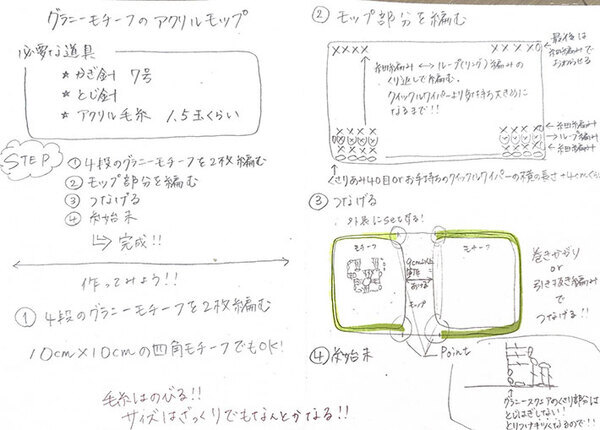 グラニーモチーフのアクリルモップ
必要な道具
★ かぎ針 7号
★ とじ針
★ アクリル毛糸 1.5玉くらい
STEP
① 4段のグラニーモチーフを2枚編む
② モップ部分を編む
③ つなげる
④ 糸始末
完成!!
作ってみよう!!
① 4段のグラニーモチーフを2枚編む
10cm×10cmの四角モチーフでもOK!
毛糸はのびる!!
サイズはざっくりでもなんとかなる!!
② モップ部分を編む
××××
××××0
最後は
細編みで
おわらせる
細編み ←→ ループ(リング)編みの
くり返しで編む。
クイックルワイパーより気持ち大きめに
なるまで!!
←細編み
←ループ編み
←細編み
くさりあみ40目orお手持ちのクイックルワイパーの横の長さ+4cmくらい
③ つなげる
外表にsetする!
モチーフ
9cmくらい
あける
モップ
モチーフ
巻きかがり
or
引き抜き編み
で
つなげる!!
Point
④ 糸始末
グラニースクエアのくさり部分は
とじはぎしない!!
とりつけキツくなるので!!